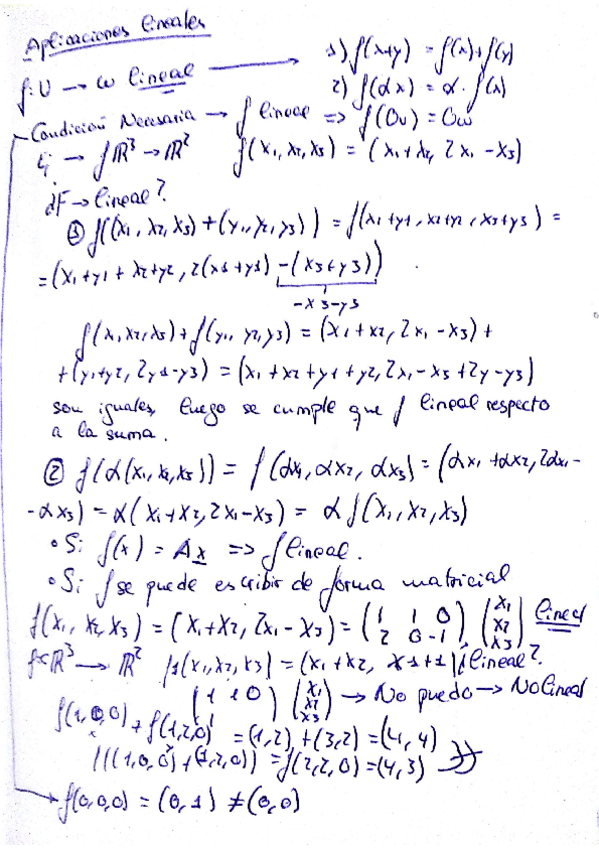 Aplicaciones lineales
f: U → W lineal → 1) f(x+y) = f(x)+f(y)
2) f(αx) = α·f(x)
Condición Necesaria → f lineal => f(0u) = 0w
Ej → f ℝ³→ℝ² f(x1, x2, x3) = (x1+x2, 2x1-x3)
¿f→lineal?
① f((x1, x2, x3)+(y1, y2, y3)) = f(x1+y1, x2+y2, x3+y3) =
=(x1+y1+x2+y2, 2(x1+y1) -(x3+y3))
-x3-y3
f(x1, x2, x3)+f(y1, y2, y3) = (x1+x2, 2x1-x3)+
+(y1+y2, 2y1-y3) = (x1+x2+y1+y2, 2x1-x3+2y-y3)
son iguales, luego se cumple que f lineal respecto
a la suma.
② f(α(x1, x2, x3)) = f(αx1, αx2, αx3) = (αx1+αx2, 2αx1-
-αx3) = α(x1+x2, 2x1-x3) = αf(x1, x2, x3)
• Si f(x) = Ax => f lineal.
• Si f se puede escribir de forma matricial
f(x1, x2, x3) = (x1+x2, 2x1-x3) = (1 1 0 / 2 0 -1) (x1 / x2 / x3) lineal
f: ℝ³ → ℝ² f(x1, x2, x3) = (x1+x2, x1+1) ¿lineal?
(1 1 0 / 1) (x1 / x2 / x3) → No puedo → No lineal
f(1,0,0)+f(1,2,0) = (1,2)+(3,2) = (4,4)
f((1,0,0)+(1,2,0)) = f(2,2,0) = (4,3)
f(0,0,0) = (0,1) ≠ (0,0)